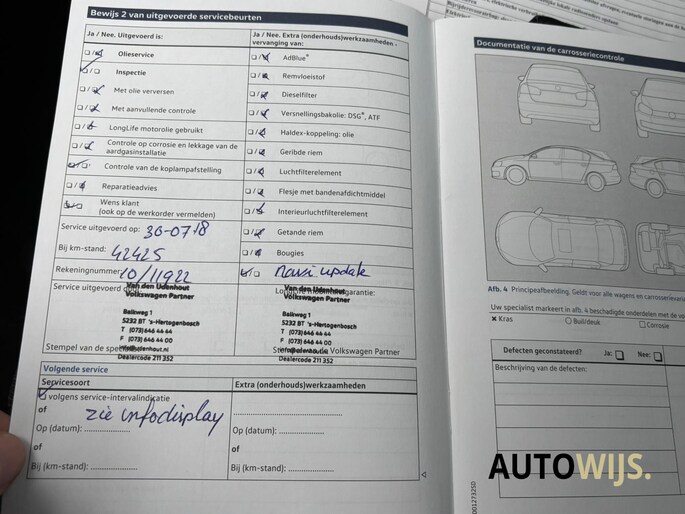 Bewijs 2 van uitgevoerde servicebeurten
Ja / Nee. Uitgevoerd is:
Olieservice
Inspectie
Met olie verversen
Met aanvullende controle
LongLife motorolie gebruikt
Controle op corrosie en lekkage van de
aardgasinstallatie
Controle van de koplampafstelling
Reparatieadvies
Wens klant
(ook op de werkorder vermelden)
Service uitgevoerd op: 30-07 18
Bij km-stand: 42425
Rekeningnummer: 10/11922
Service uitgevoerd door
Van Den Udenhout
Volkswagen Partner
Balkweg 1
5232 BT 's-Hertogenbosch
T (073) 646 44 44
F (073) 646 44 00
info@udenhout.nl
Dealercode 211 352
Stempel van de
Ja / Nee. Extra (onderhouds)werkzaamheden -
vervanging van:
AdBlue®
Remvloeistof
Dieselfilter
Versnellingsbakolie: DSG®, ATF
Haldex-koppeling: olie
Geribde riem
Luchtfilterelement
Flesje met bandenafdichtmiddel
Interieurluchtfilterelement
Getande riem
Bougies
navi update
garantie:
Van Den Udenhout
Volkswagen Partner
Balkweg 1
5232 BT 's-Hertogenbosch
T (073) 646 44 44
F (073) 646 44 00
info@udenhout.nl
Dealercode 211 352
Volkswagen Partner
Volgende service
Servicesoort
volgens service-intervalindicatie
of zie infodisplay
Op (datum):
of
Bij (km-stand):
Extra (onderhouds)werkzaamheden
Op (datum):
of
Bij (km-stand):
Documentatie van de carrosseriecontrole
Afb. 4 Principeafbeelding. Geldt voor alle wagens en carrosserievaria
Uw specialist markeert in afb. 4 beschadigde onderdelen met de vo
Kras
Buil/deuk
Corrosie
Defecten geconstateerd? Ja: Nee:
Beschrijving van de defecten:
AUTOWIJS.